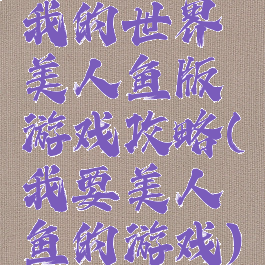 我的世界
美人鱼版
游戏攻略(
我要美人
鱼的游戏)